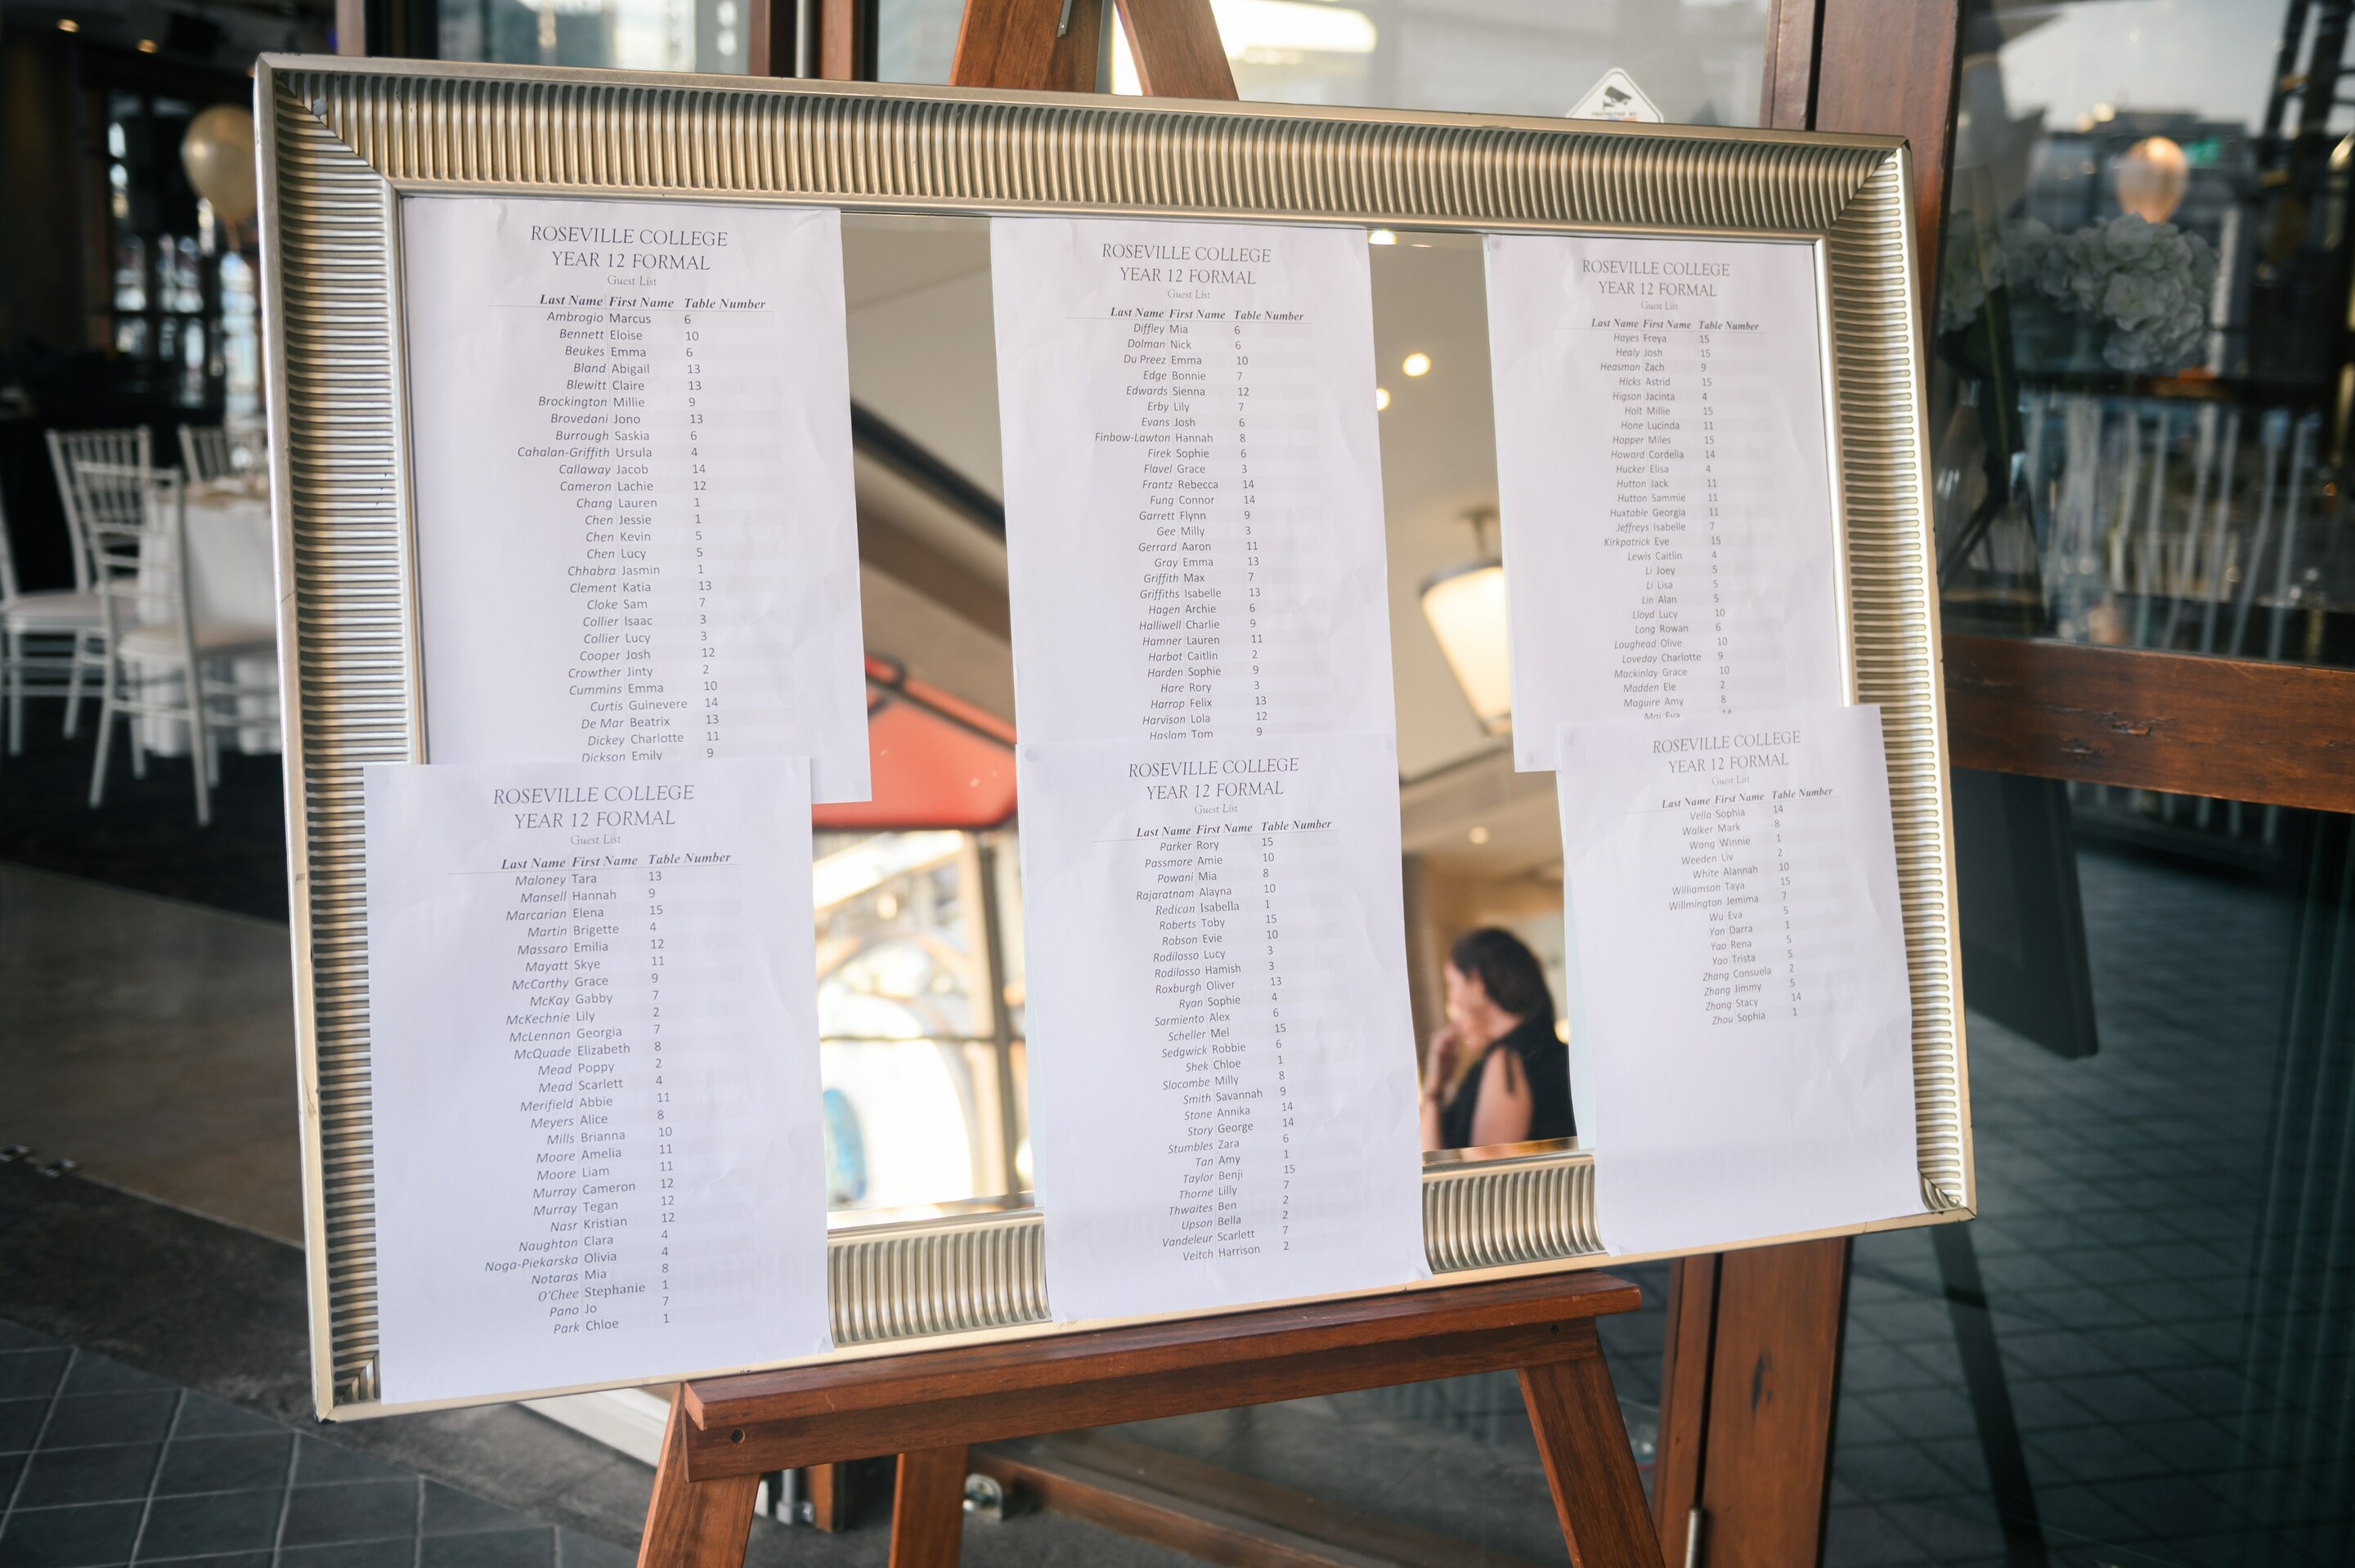 ROSEVILLE COLLEGE
YEAR 12 FORMAL
Guest List
Last Name First Name Table Number
Ambrogio Marcus 6
Bennett Eloise 10
Beukes Emma 6
Bland Abigail 13
Blewitt Claire 13
Brockington Millie 9
Brovedani Jono 13
Burrough Saskia 6
Cahalan-Griffith Ursula 4
Callaway Jacob 14
Cameron Lachie 12
Chang Lauren 1
Chen Jessie 1
Chen Kevin 5
Chen Lucy 5
Chhabra Jasmin 1
Clement Katia 13
Cloke Sam 7
Collier Isaac 3
Collier Lucy 3
Cooper Josh 12
Crowther Jinty 2
Cummins Emma 10
Curtis Guinevere 14
De Mar Beatrix 13
Dickey Charlotte 11
Dickson Emily 9
ROSEVILLE COLLEGE
YEAR 12 FORMAL
Guest List
Last Name First Name Table Number
Diffley Mia 6
Dolman Nick 6
Du Preez Emma 10
Edge Bonnie 7
Edwards Sienna 12
Erby Lily 7
Evans Josh 6
Finbow-Lawton Hannah 8
Firek Sophie 6
Flavel Grace 3
Frantz Rebecca 14
Fung Connor 14
Garrett Flynn 9
Gee Milly 3
Gerrard Aaron 11
Gray Emma 13
Griffith Max 7
Griffiths Isabelle 13
Hagen Archie 6
Halliwell Charlie 9
Hamner Lauren 11
Harbot Caitlin 2
Harden Sophie 9
Hare Rory 3
Harrop Felix 13
Harvison Lola 12
Haslam Tom 9
ROSEVILLE COLLEGE
YEAR 12 FORMAL
Guest List
Last Name First Name Table Number
Hayes Freya 15
Healy Josh 15
Heasman Zach 9
Hicks Astrid 15
Higson Jacinta 4
Holt Millie 15
Hone Lucinda 11
Hopper Miles 15
Howard Cordelia 14
Hucker Elisa 4
Hutton Jack 11
Hutton Sammie 11
Huxtable Georgia 11
Jeffreys Isabelle 7
Kirkpatrick Eve 15
Lewis Caitlin 4
Li Joey 5
Li Lisa 5
Lin Alan 5
Lloyd Lucy 10
Long Rowan 6
Loughead Olive 10
Loveday Charlotte 9
Mackinlay Grace 10
Madden Ele 2
Maguire Amy 8
Mai Eva 14
ROSEVILLE COLLEGE
YEAR 12 FORMAL
Guest List
Last Name First Name Table Number
Maloney Tara 13
Mansell Hannah 9
Marcarian Elena 15
Martin Brigette 4
Massaro Emilia 12
Mayatt Skye 11
McCarthy Grace 9
McKay Gabby 7
McKechnie Lily 2
McLennan Georgia 7
McQuade Elizabeth 8
Mead Poppy 2
Mead Scarlett 4
Merifield Abbie 11
Meyers Alice 8
Mills Brianna 10
Moore Amelia 11
Moore Liam 11
Murray Cameron 12
Murray Tegan 12
Nasr Kristian 12
Naughton Clara 4
Noga-Piekarska Olivia 4
Notaras Mia 8
O'Chee Stephanie 1
Pano Jo 7
Park Chloe 1
ROSEVILLE COLLEGE
YEAR 12 FORMAL
Guest List
Last Name First Name Table Number
Parker Rory 15
Passmore Amie 10
Powani Mia 8
Rajaratnam Alayna 10
Redican Isabella 1
Roberts Toby 15
Robson Evie 10
Rodilosso Lucy 3
Rodilosso Hamish 3
Roxburgh Oliver 13
Ryan Sophie 4
Sarmiento Alex 6
Scheller Mel 15
Sedgwick Robbie 6
Shek Chloe 1
Slocombe Milly 8
Smith Savannah 9
Stone Annika 14
Story George 14
Stumbles Zara 6
Tan Amy 1
Taylor Benji 15
Thorne Lilly 7
Thwaites Ben 2
Upson Bella 2
Vandeleur Scarlett 7
Veitch Harrison 2
ROSEVILLE COLLEGE
YEAR 12 FORMAL
Guest List
Last Name First Name Table Number
Vella Sophia 14
Walker Mark 8
Wang Winnie 1
Weeden Liv 2
White Alannah 10
Williamson Taya 15
Willmington Jemima 7
Wu Eva 5
Yan Darra 1
Yao Rena 5
Yao Trista 5
Zhang Consuela 2
Zhang Jimmy 5
Zhang Stacy 14
Zhou Sophia 1